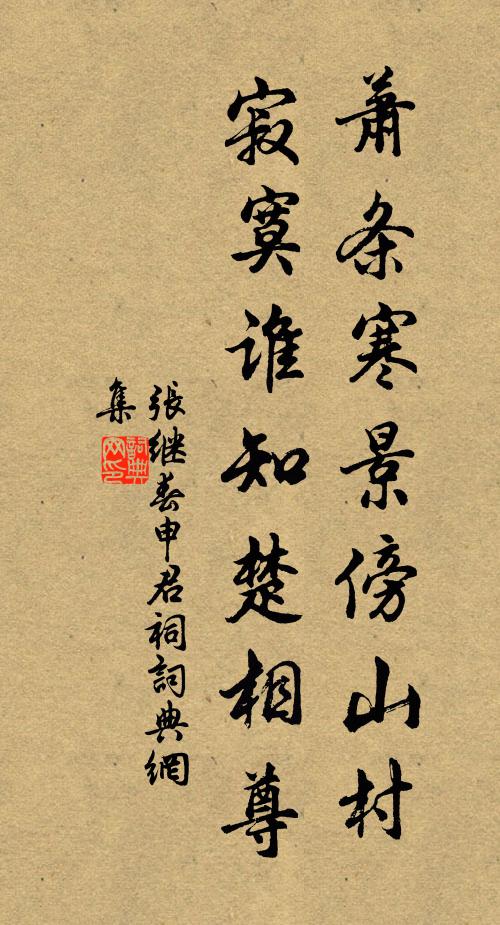 萧条寒景傍山村
寂寞谁知楚相尊
張继春申君祠詞典網
集
詞典
网印